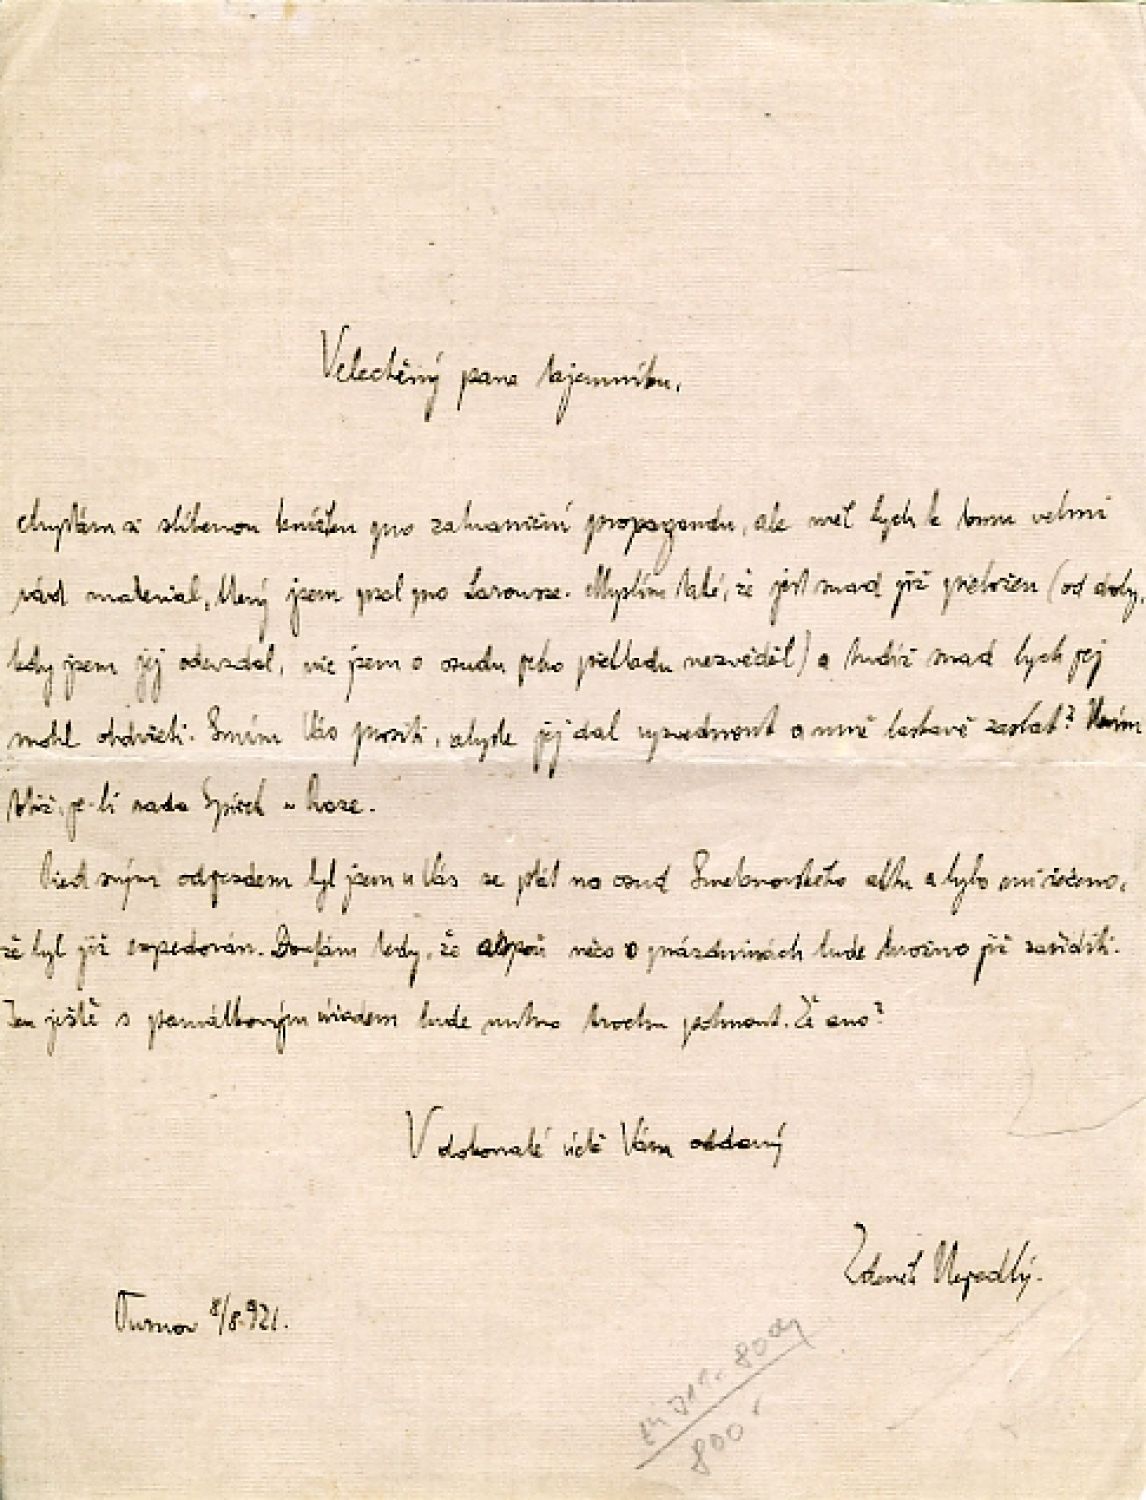 Velectěný pane tajemníku,
chystám si slíbenou knížku pro zahraniční propagandu, ale měl bych k tomu velmi
rád material, který jsem psal pro Larousse. Myslím také, že jest snad již přeložen (od doby,
kdy jsem jej odevzdal, nic jsem o osudu jeho překladu nezvěděl) a tudíž snad bych jej
mohl obdržeti. Smím Vás prositi, abyste jej dal vyzvednout a mně laskavě zaslat? Nevím
totiž, je-li rada Špíšek v Praze.
Před svým odjezdem byl jsem u Vás se ptát na osud Smetanovského aktu a bylo mi řečeno,
že byl již expedován. Doufám tedy, že aspoň něco o prázdninách bude možno již zaříditi.
Jen ještě s památkovým úřadem bude nutno trochu pohnout. Že ano?
V dokonalé úctě Vám oddaný
Zdeněk Nejedlý.
Turnov 8/8.921.
800